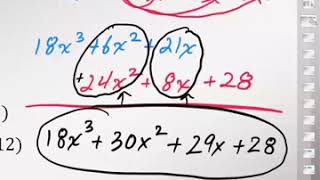 18x³ + 6x² + 21x
+ 24x² + 8x + 28
)
12) 18x³ + 30x² + 29x + 28